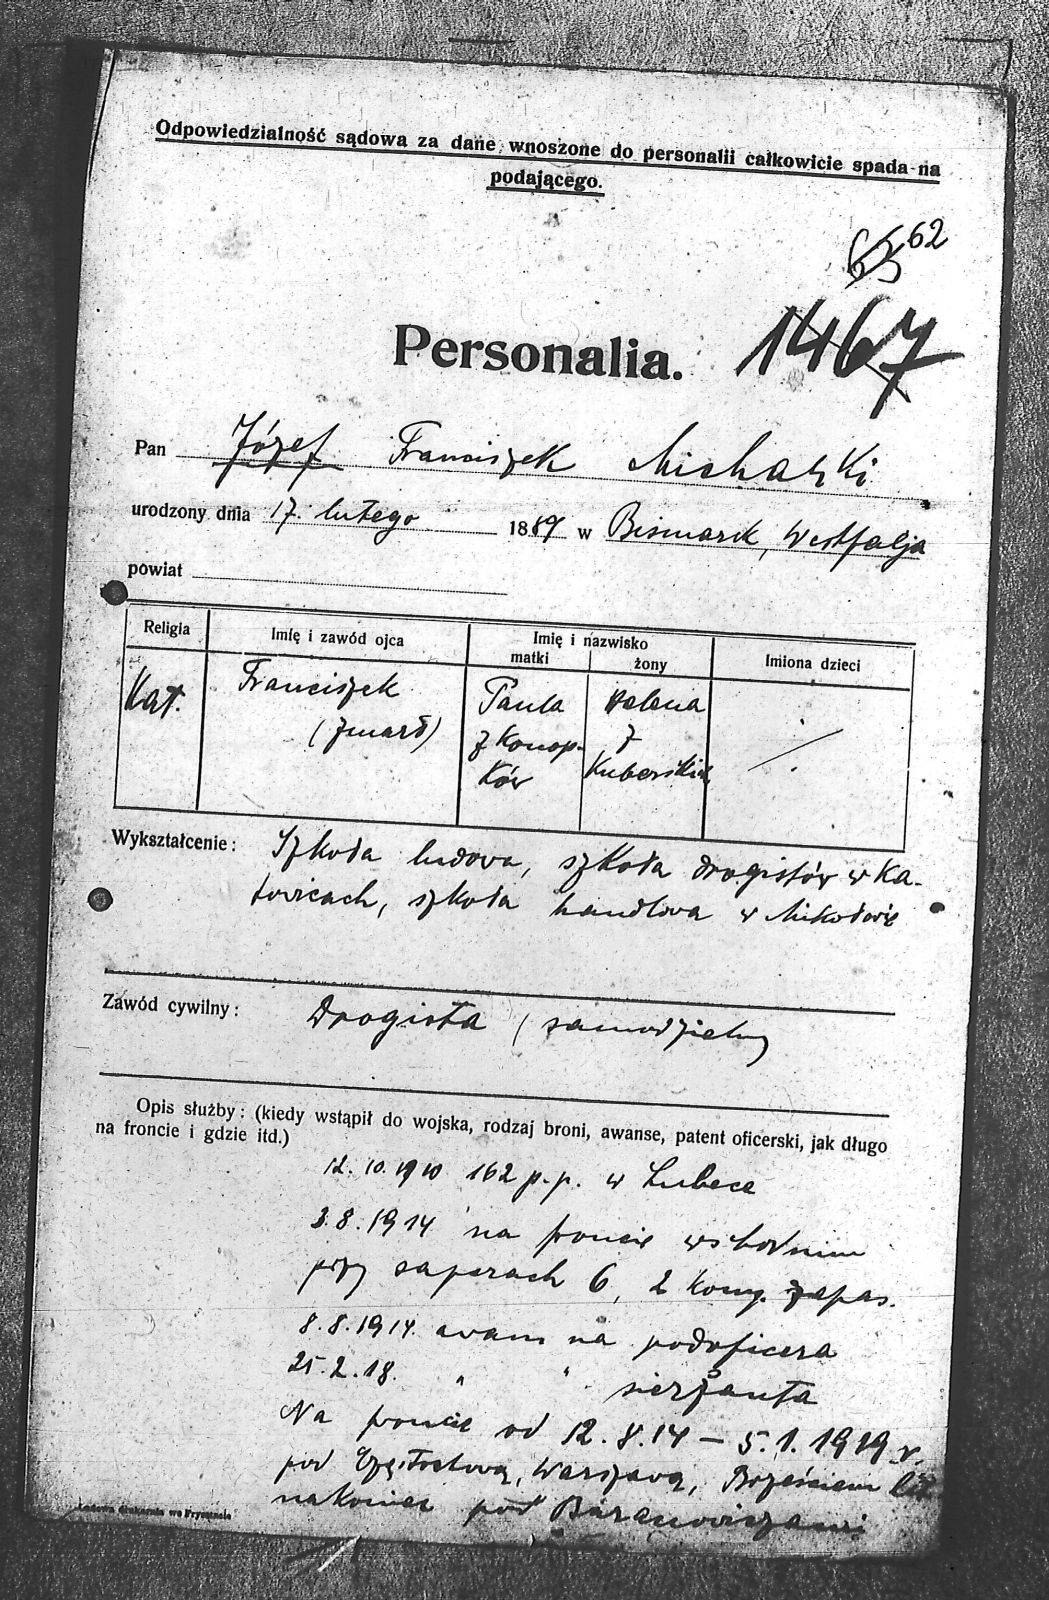 Odpowiedzialność sądowa za dane wnoszone do personalii całkowicie spada na
podającego.
62
65
Personalia. 1467
Pan Józef Franciszek Michalski
urodzony dnia 17. lutego 1889 w Bismarck, Westfalja
powiat
Religia Imię i zawód ojca Imię i nazwisko Imiona dzieci
matki żony
Kat. Franciszek Paula Helena
(zmarł) z Konop- z
ków Kuberskich
Wykształcenie: Szkoła ludowa, szkoła drogistów w Ka-
towicach, szkoła handlowa w Mikołowie
Zawód cywilny: Drogista (samodzielny)
Opis służby: (kiedy wstąpił do wojska, rodzaj broni, awanse, patent oficerski, jak długo
na froncie i gdzie itd.)
12. 10. 1910 162 p.p. w Lubece
3.8.1914 na froncie wschodnim
przy saperach 6, 2 komp. zapas.
8.8.1914. awans na podoficera
25.2.18. " " sierżanta
Na froncie od 12.8.14 – 5.1.1919 r.
pod Częstochową, Warszawą, Brześciem Lit.
nakoniec pod Baranowiczami
Ludowa drukarnia we Frysztacie